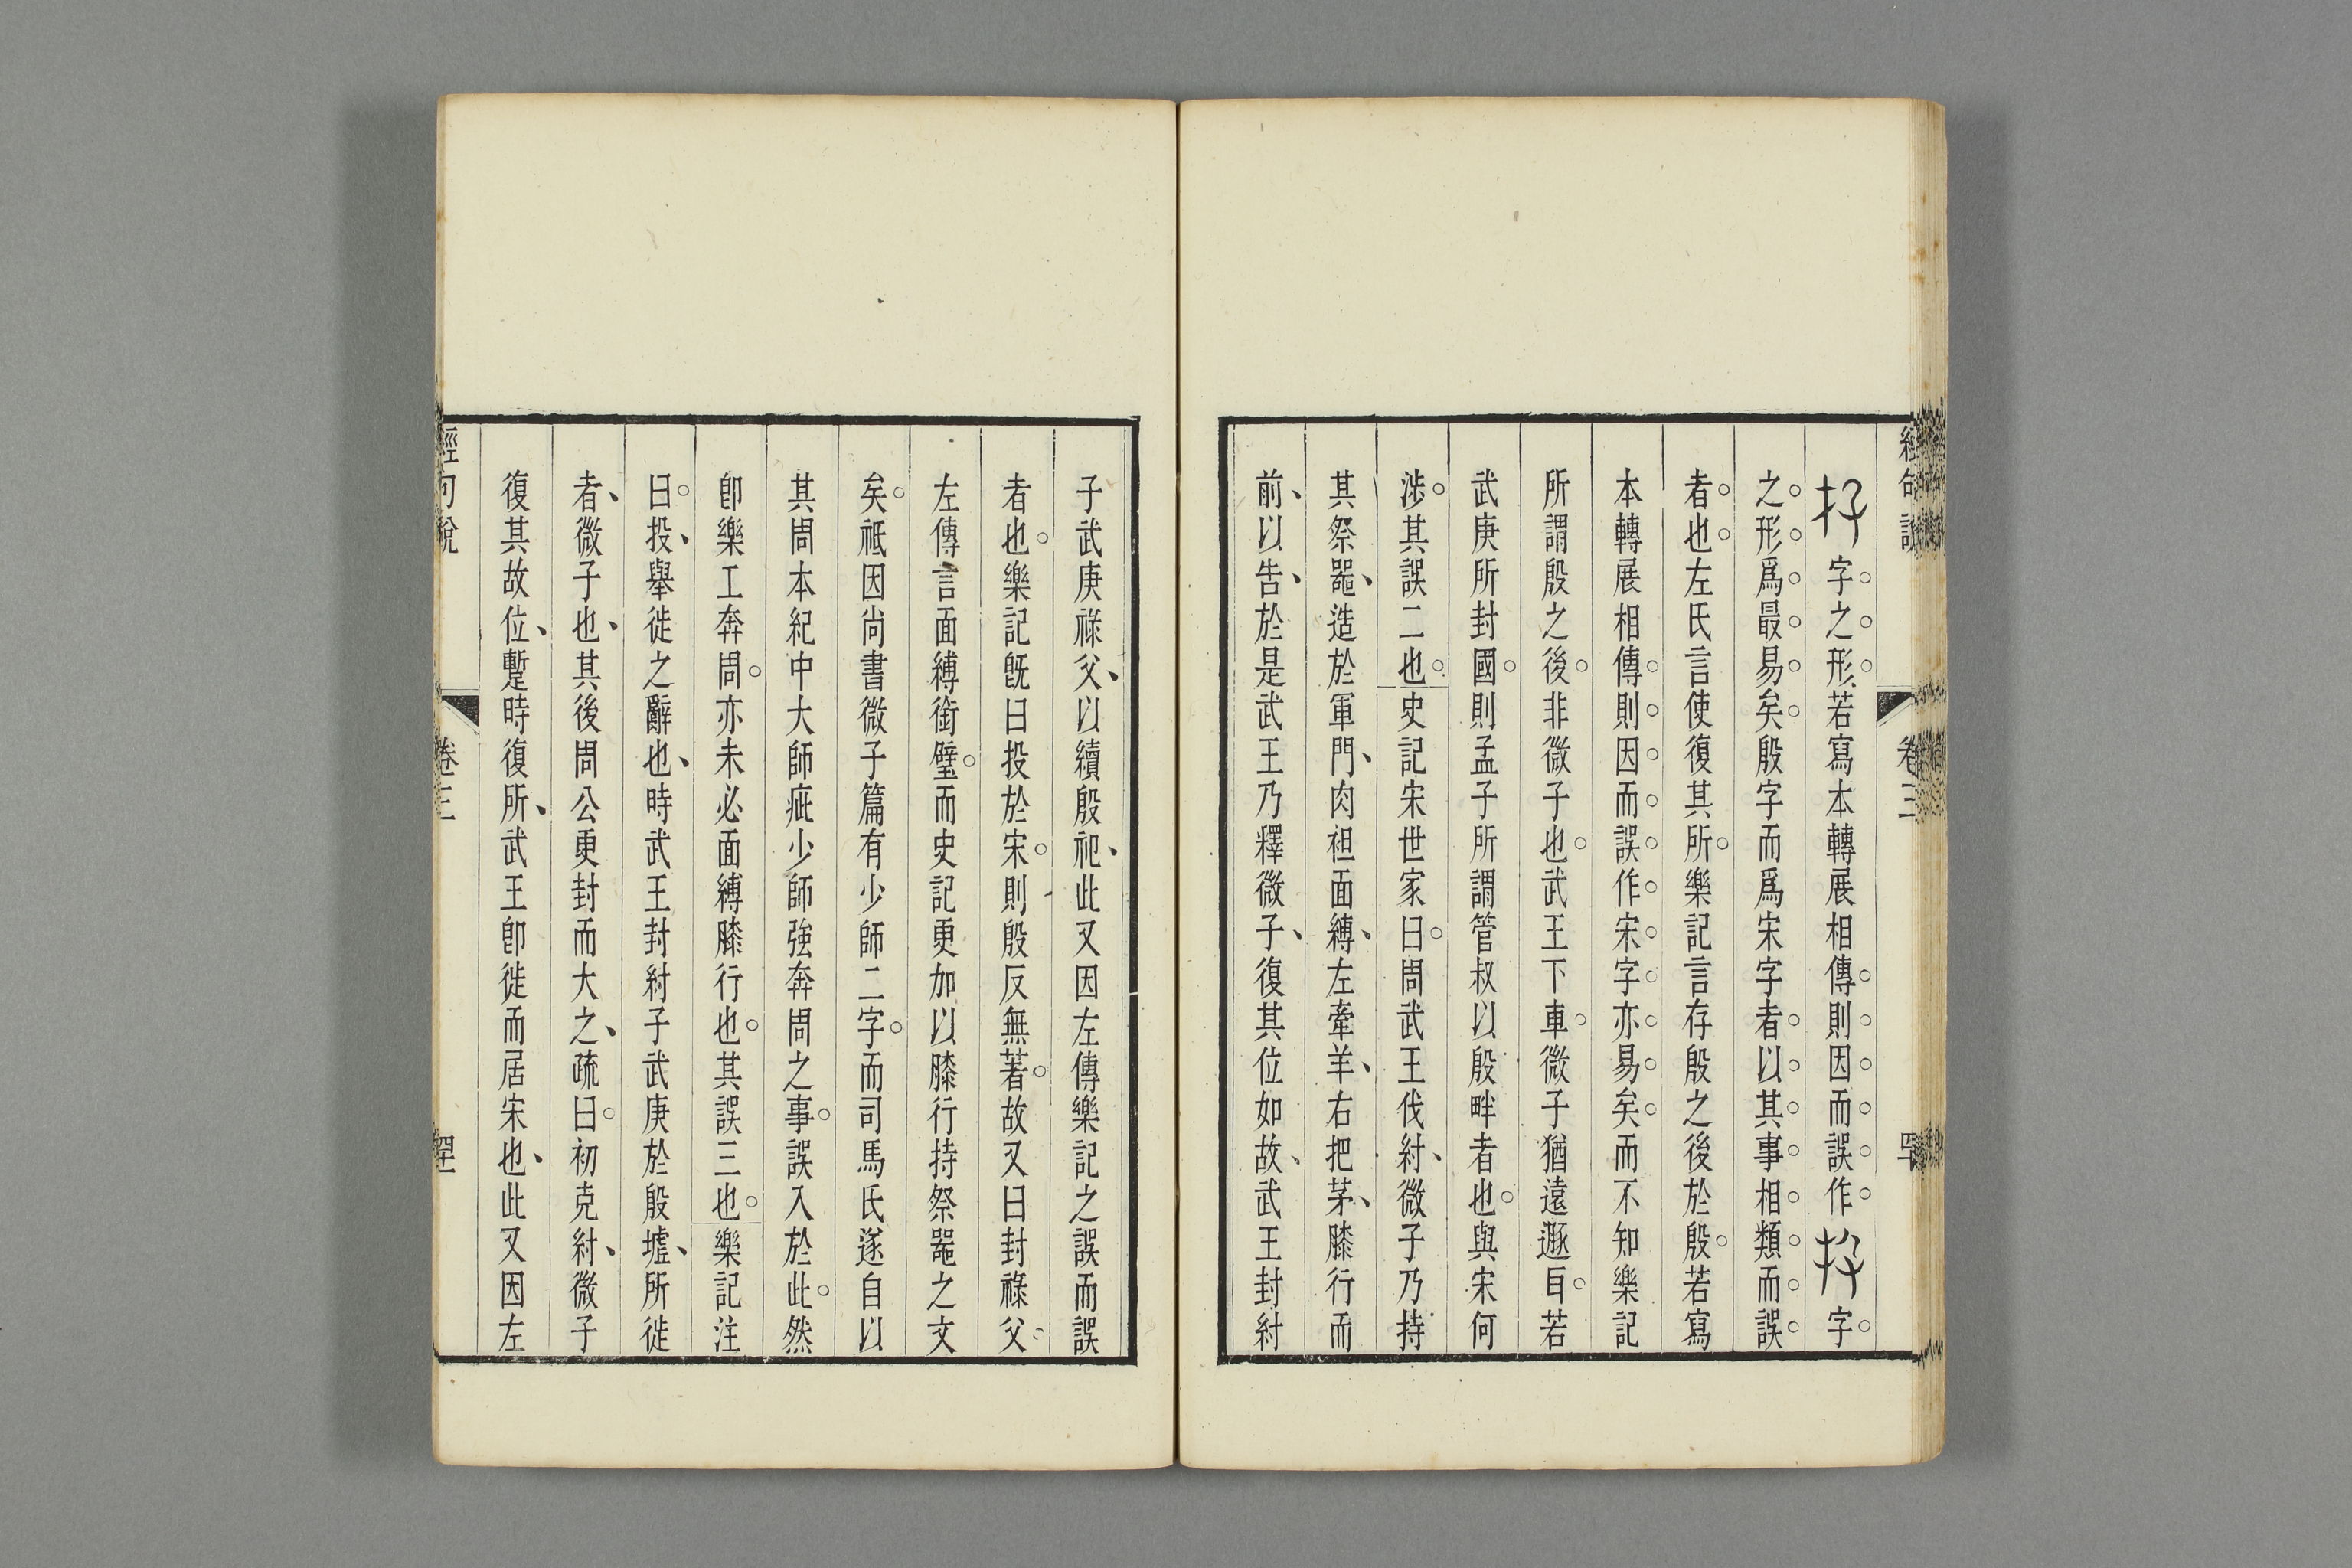 字之形若寫本轉展相傳則因而誤作字
之形爲最易矣殷字而爲宋字者以其事相類而誤
者也左氏言使復其所樂記言存殷之後於殷若寫
本轉展相傳則因而誤作宋字亦易矣而不知樂記
所謂殷之後非微子也武王下車微子猶遠遯㠯若
武庚所封國則孟子所謂管叔以殷畔者也與宋何
涉其誤二也史記宋世家曰周武王伐紂微子乃持
其祭噐造於軍門肉袒面縛左牽羊右把茅膝行而
前以告於是武王乃釋微子復其位如故武王封紂
子武庚祿父以續殷祀此又因左傳樂記之誤而誤
者也樂記旣曰投於宋則殷反無著故又曰封祿父
左傳言面縛銜璧而史記更加以膝行持祭噐之文
矣祗因尚書微子篇有少師二字而司馬氏遂自以
其周本紀中大師疵少師強奔周之事誤入於此然
卽樂工奔周亦未必面縛膝行也其誤三也樂記注
曰投舉徙之辭也時武王封紂子武庚於殷墟所徙
者微子也其後周公更封而大之疏曰初克紂微子
復其故位蹔時復所武王卽徙而居宋也此又因左
經句說
卷三